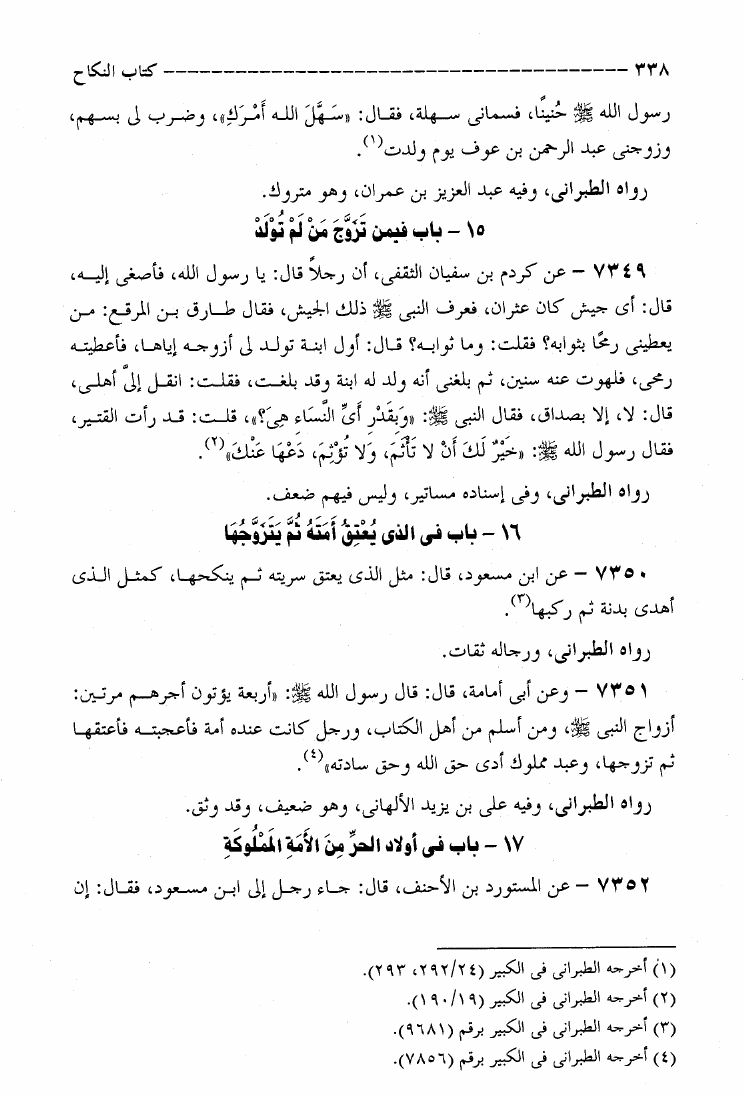 ٣٣٨ -------------------------------------- كتاب النكاح
رسول الله ﷺ حُنينًا، فسمانى سهلة، فقال: «سَهَّلَ الله أَمْرَكِ»، وضرب لى بسهم،
وزوجنى عبد الرحمن بن عوف يوم ولدت(١).
رواه الطبرانى، وفيه عبد العزيز بن عمران، وهو متروك.
١٥ – باب فيمن تَزَوَّجَ مَنْ لَمْ تُولَدْ
٧٣٤٩ – عن كردم بن سفيان الثقفى، أن رجلاً قال: يا رسول الله، فأصغى إليه،
قال: أى جيش كان عثران، فعرف النبى ﷺ ذلك الجيش، فقال طارق بن المرقع: من
يعطينى رمحًا بثوابه؟ فقلت: وما ثوابه؟ قال: أول ابنة تولد لى أزوجه إياها، فأعطيته
رمحى، فلهوت عنه سنين، ثم بلغنى أنه ولد له ابنة وقد بلغت، فقلت: انقل إلىَّ أهلى،
قال: لا، إلا بصداق، فقال النبى ﷺ: «وَبِقَدْرِ أَىِّ النِّسَاءِ هِىَ؟»، قلت: قد رأت القتير،
فقال رسول الله ﷺ: «خَيْرٌ لَكَ أَنْ لا تَأْثَمَ، وَلا تُؤْثِمَ، دَعْهَا عَنْكَ»(٢).
رواه الطبرانى، وفى إسناده مساتير، وليس فيهم ضعف.
١٦ – باب فى الذى يُعْتِقُ أَمَتَهُ ثُمَّ يَتَزَوَّجُهَا
٧٣٥٠ – عن ابن مسعود، قال: مثل الذى يعتق سريته ثم ينكحها، كمثل الذى
أهدى بدنة ثم ركبها(٣).
رواه الطبرانى، ورجاله ثقات.
٧٣٥١ – وعن أبى أمامة، قال: قال رسول الله ﷺ: «أربعة يؤتون أجرهم مرتين:
أزواج النبى ﷺ، ومن أسلم من أهل الكتاب، ورجل كانت عنده أمة فأعجبته فأعتقها
ثم تزوجها، وعبد مملوك أدى حق الله وحق سادته»(٤).
رواه الطبرانى، وفيه على بن يزيد الألهانى، وهو ضعيف، وقد وثق.
١٧ – باب فى أولاد الحرِّ مِنَ الأَمَةِ المَمْلُوكَةِ
٧٣٥٢ – عن المستورد بن الأحنف، قال: جاء رجل إلى ابن مسعود، فقال: إن
(١) أخرجه الطبرانى فى الكبير (٢٩٢/٢٤، ٢٩٣).
(٢) أخرجه الطبرانى فى الكبير (١٩٠/١٩).
(٣) أخرجه الطبرانى فى الكبير برقم (٩٦٨١).
(٤) أخرجه الطبرانى فى الكبير برقم (٧٨٥٦).